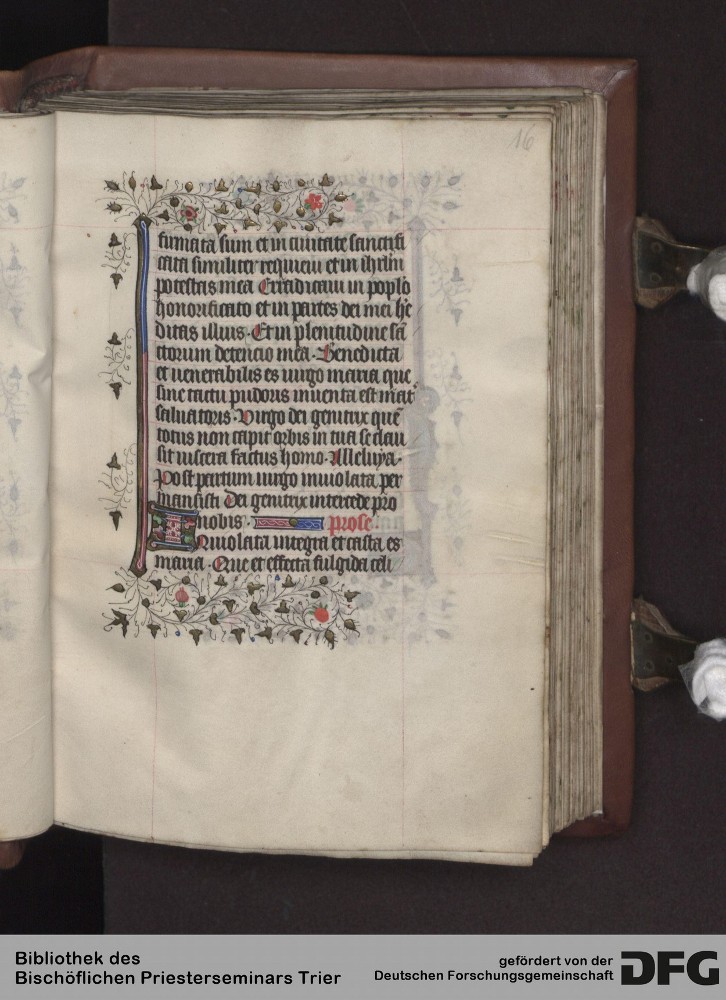 16
firmata sum et in ciuitate sanctifi
cata similiter requieui et in ihrlm
potestas mea Et radicaui in poplo
honorificato et in partes dei mei he
ditas illius. Et in plenitudine sā
ctorum detencio mea. Benedicta
et uenerabilis es uirgo maria que
sine tactu pudoris inuenta est mat
saluatoris. Uirgo dei genitrix quē
totus non capit orbis in tua se clau
sit uiscera factus homo. Alleluya.
Post partum uirgo inuiolata per
mansisti Dei genitrix intercede pro
nobis. prose
Inuiolata integra et casta es
maria. Que et effecta fulgida celi
Bibliothek des
Bischöflichen Priesterseminars Trier
gefördert von der
Deutschen Forschungsgemeinschaft
DFG